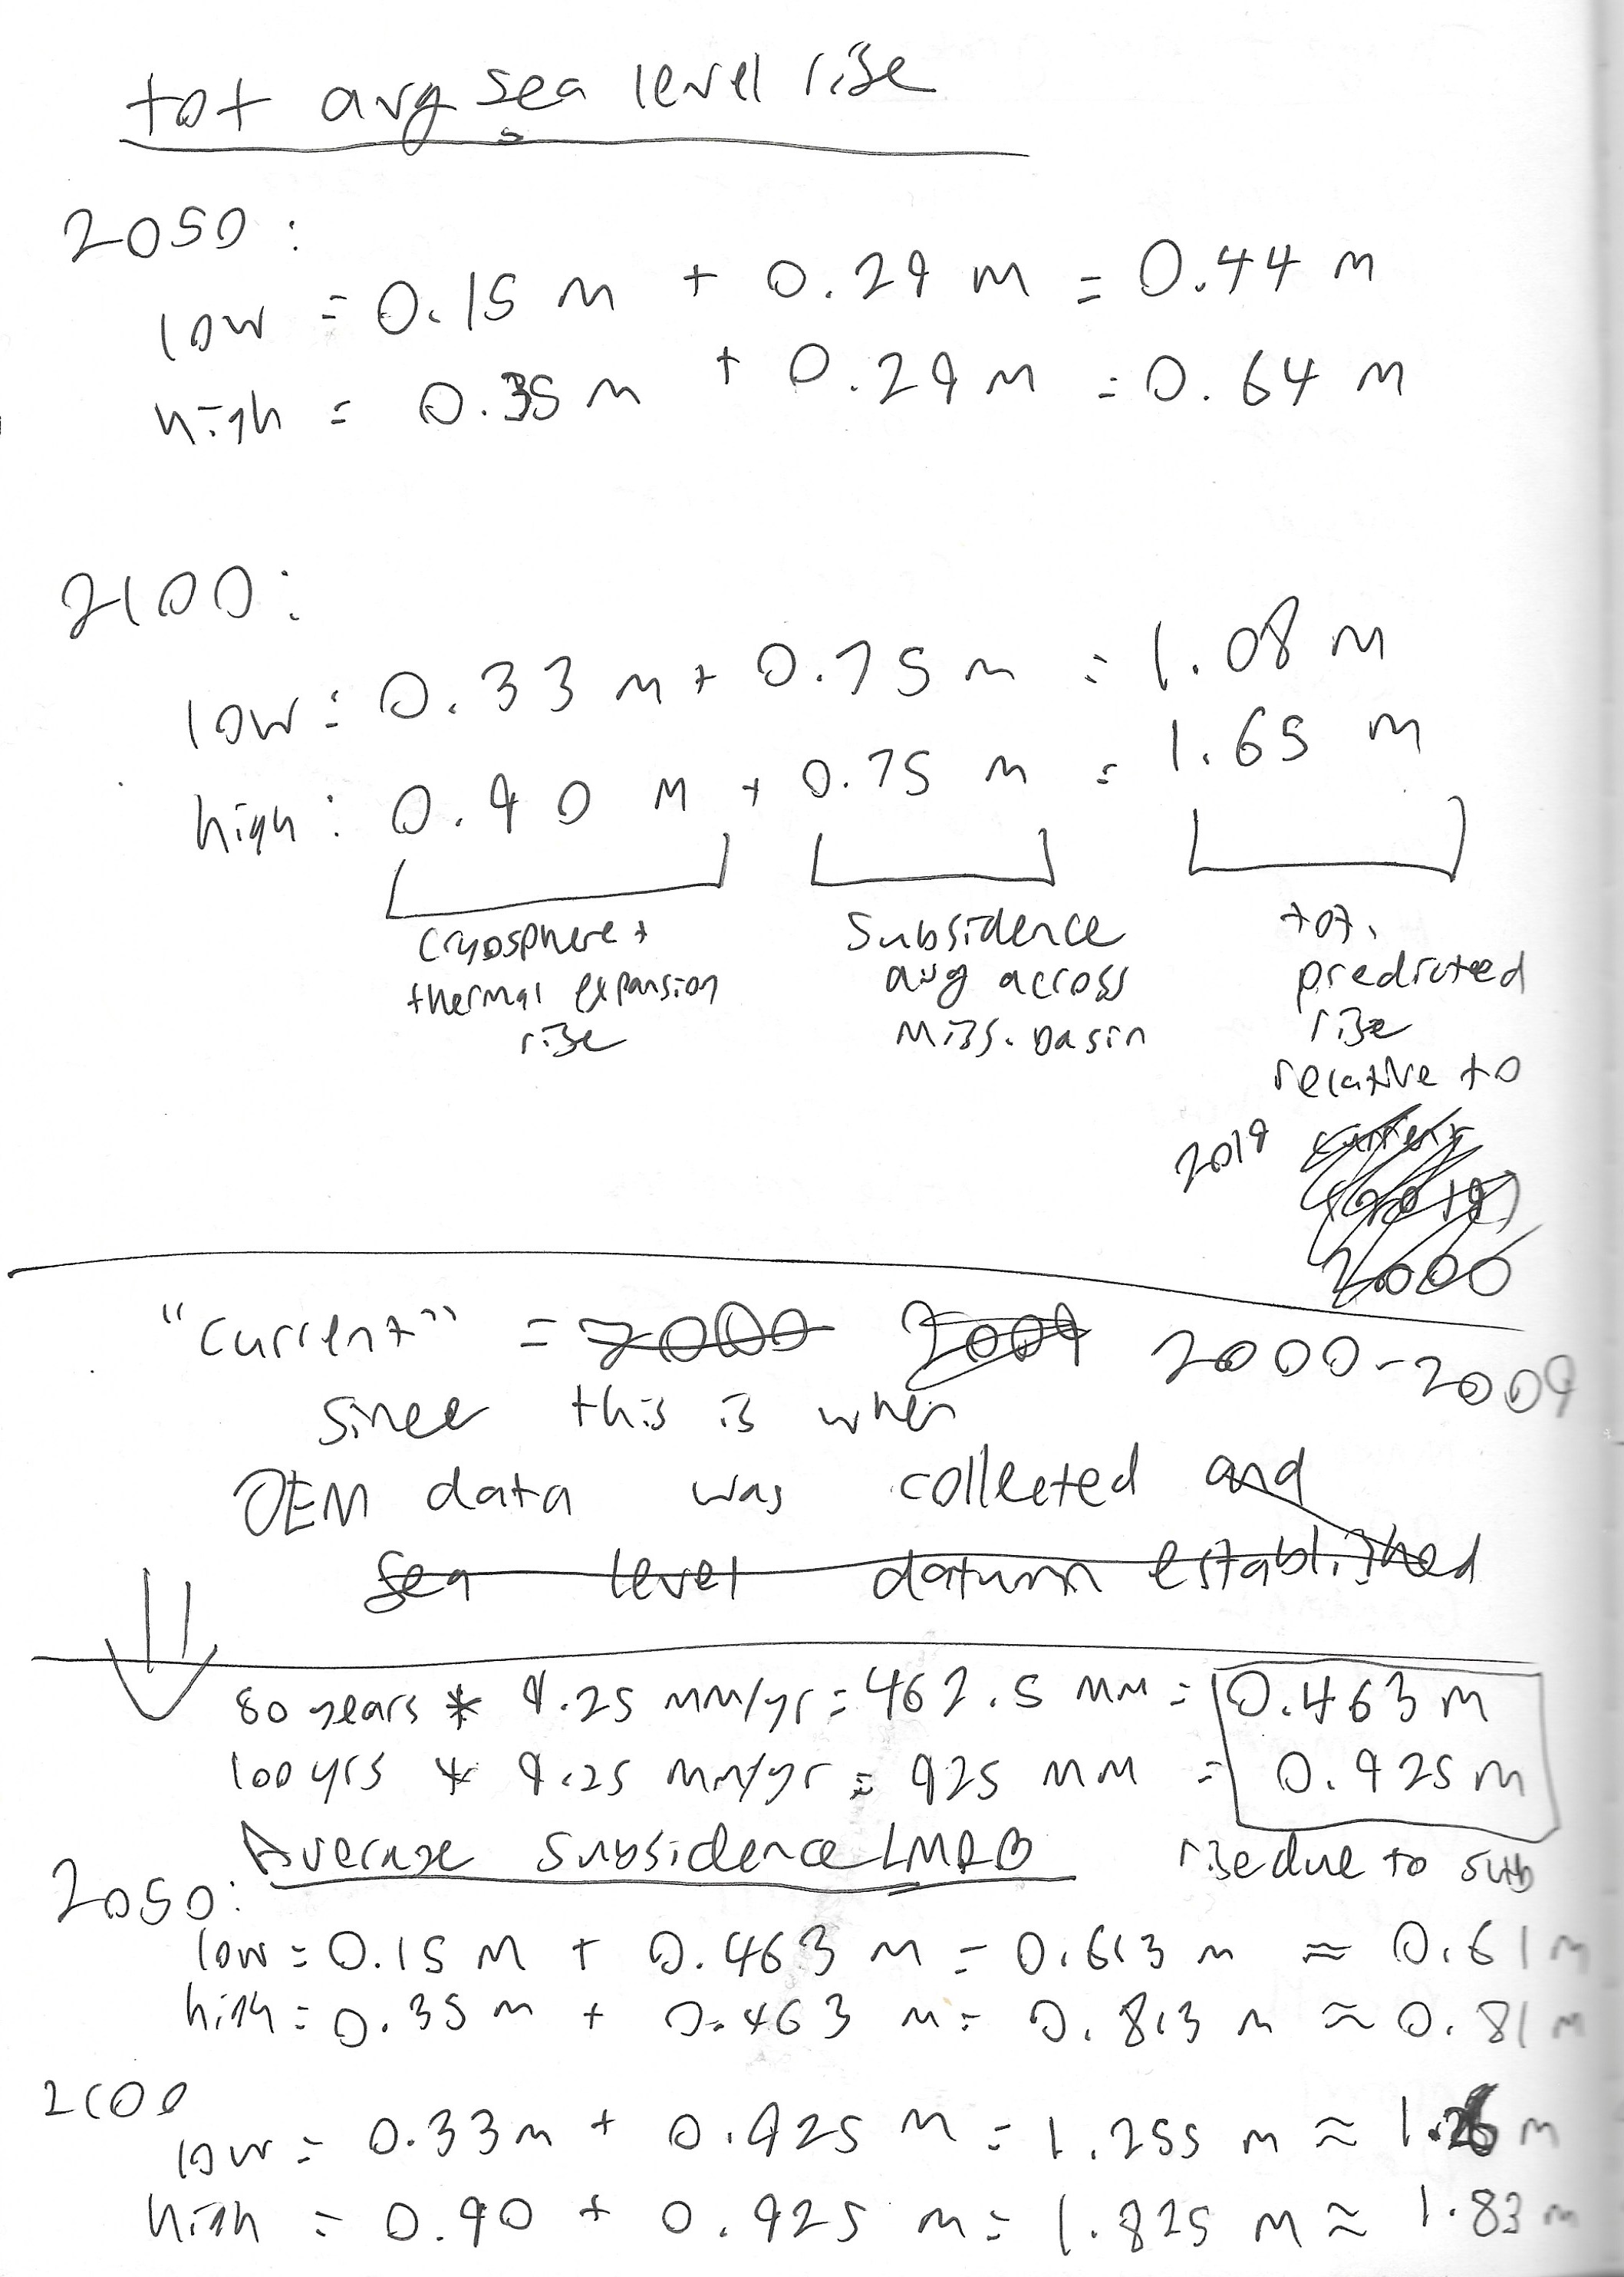 tot avg sea level rise
2050:
low = 0.15 m + 0.29 m = 0.44 m
high = 0.35 m + 0.29 m = 0.64 m
2100:
low = 0.33 m + 0.75 m = 1.08 m
high: 0.90 m + 0.75 m = 1.65 m
cryosphere + thermal expansion rise
Subsidence avg across Miss. basin
tot. predicted rise relative to
2019 current (2019) 2000
"current" = 2000 2009 2000-2009
since this is when
DEM data was collected and
sea level datum established
50 years * 9.25 mm/yr = 462.5 mm = 0.463 m
100 yrs * 9.25 mm/yr = 925 mm = 0.925 m
Average Subsidence LMRB rise due to sub
2050:
low = 0.15 m + 0.463 m = 0.613 m ≈ 0.61 m
high = 0.35 m + 0.463 m = 0.813 m ≈ 0.81 m
2100
low = 0.33 m + 0.925 m = 1.255 m ≈ 1.26 m
high = 0.90 + 0.925 m = 1.825 m ≈ 1.83 m